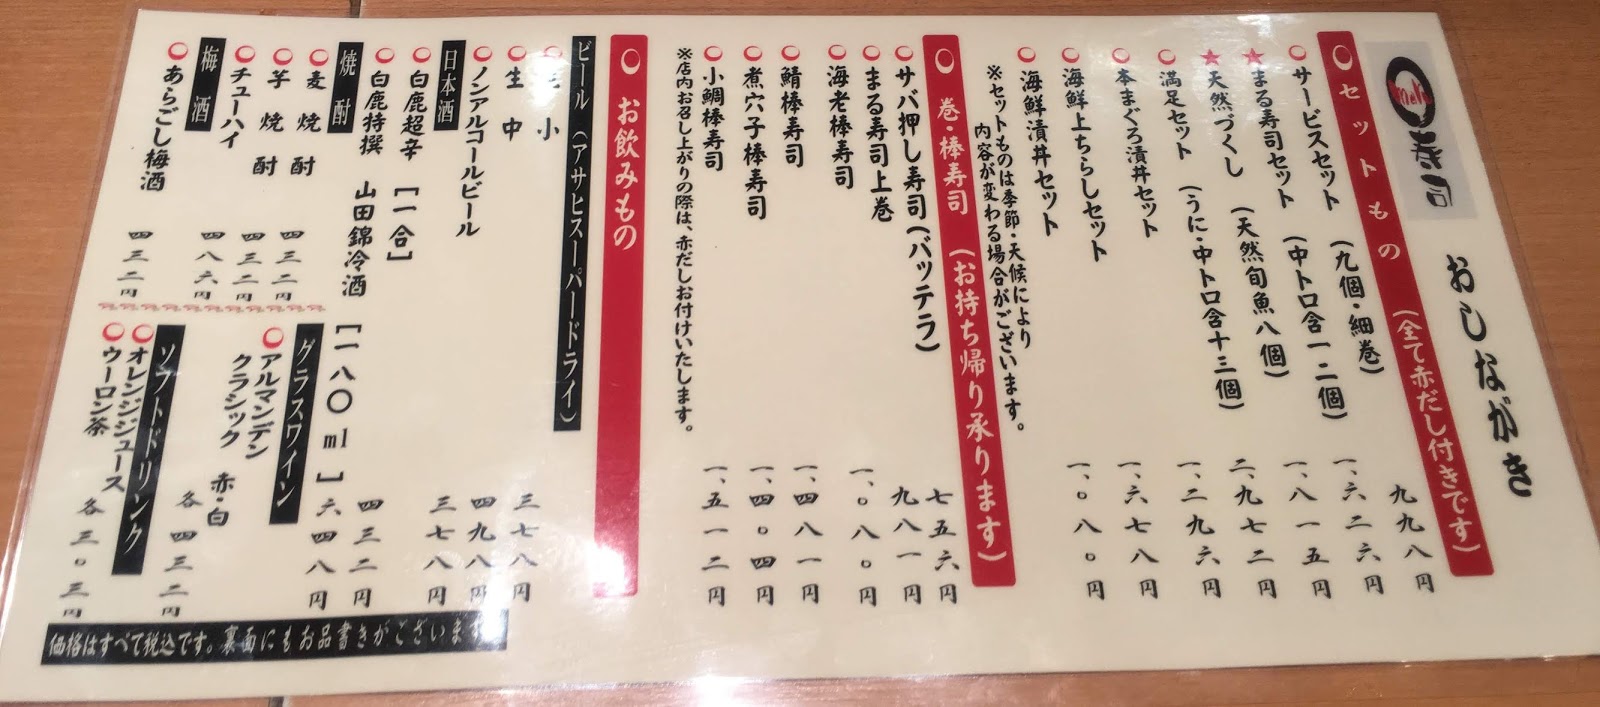 寿司
おしながき
セットもの(全て赤だし付きです)
サービスセット(九個・細巻) 九九八円
★まる寿司セット(中トロ含一二個) 一、六二六円
★天然づくし(天然旬魚八個) 一、八一五円
満足セット(うに・中トロ含十三個) 二、九七二円
本まぐろ漬丼セット 一、二九六円
海鮮上ちらしセット 一、六七八円
海鮮漬丼セット 一、〇八〇円
※セットものは季節・天候により
内容が変わる場合がございます。
巻・棒寿司(お持ち帰り承ります)
サバ押し寿司(バッテラ) 七五六円
まる寿司上巻 九八一円
海老棒寿司 一、〇八〇円
鯖棒寿司 一、四八一円
煮穴子棒寿司 一、四〇四円
小鯛棒寿司 一、五一二円
※店内お召し上がりの際は、赤だしお付けいたします。
お飲みもの
ビール(アサヒスーパードライ)
生小 三七八円
生中 四九八円
ノンアルコールビール 三七八円
日本酒
白鹿超辛[一合] 四三二円
白鹿特撰 山田錦冷酒[一八〇ml] 六四八円
焼酎
麦焼酎 四三二円
芋焼酎 四三二円
チューハイ 四八六円
梅酒
あらごし梅酒 四三二円
グラスワイン
アルマンデン
クラシック 赤・白
各四三二円
ソフトドリンク
オレンジジュース
ウーロン茶
各三〇三円
価格はすべて税込です。裏面にもお品書きがございます